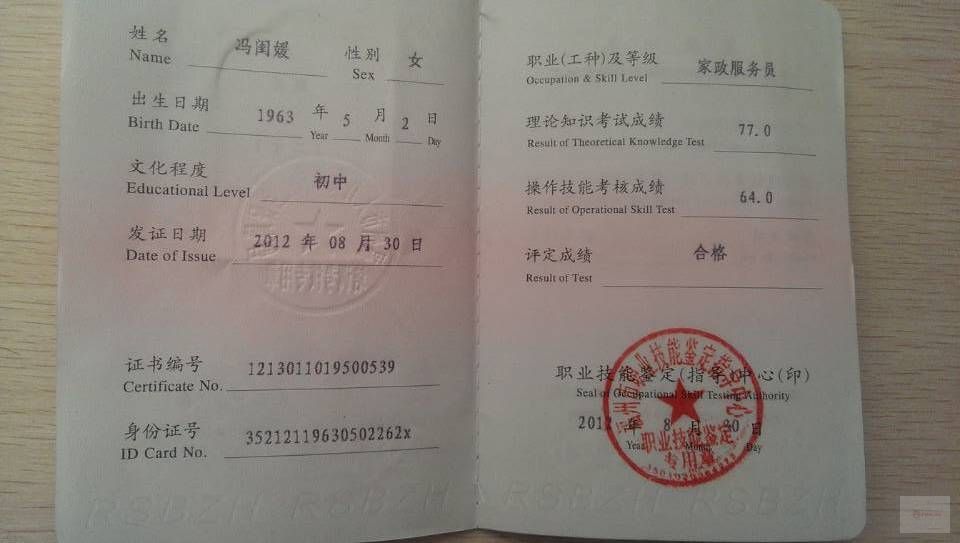 姓名 冯闺媛 性别 女
Name Sex
出生日期 1963 年 5 月 2 日
Birth Date Year Month Day
文化程度 初中
Educational Level
发证日期 2012 年 08 月 30 日
Date of Issue
证书编号 1213011019500539
Certificate No.
身份证号 35212119630502262x
ID Card No.
RSBZH RSBZH
职业(工种)及等级 家政服务员
Occupation & Skill Level
理论知识考试成绩 77.0
Result of Theoretical Knowledge Test
操作技能考核成绩 64.0
Result of Operational Skill Test
评定成绩 合格
Result of Test
职业技能鉴定(指导)中心(印)
Seal of Occupational Skill Testing Authority
2012 年 8 月 30 日
Year Month Day
职业技能鉴定
专用章
RSBZH RSBZH